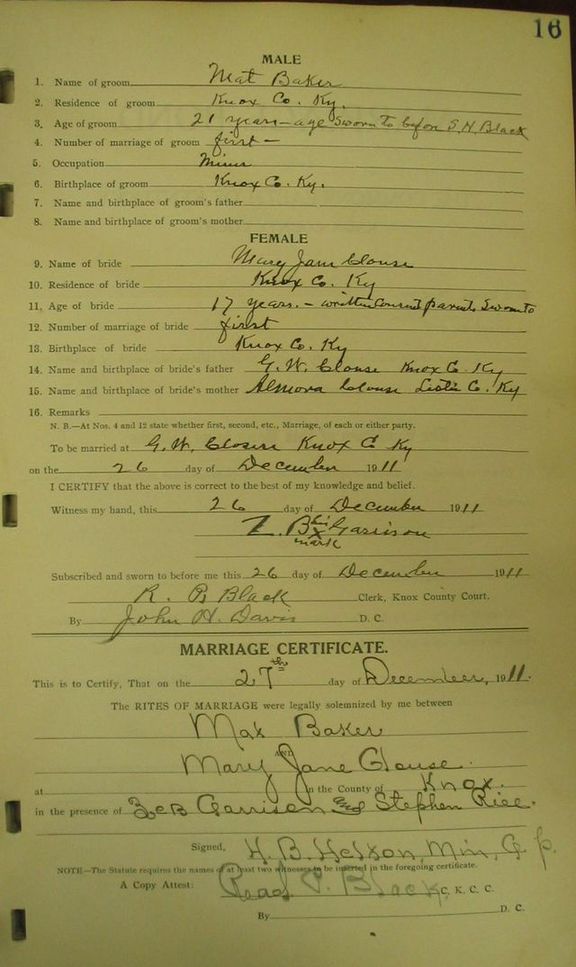 16
MALE
1. Name of groom Mat Baker
2. Residence of groom Knox Co. Ky.
3. Age of groom 21 years - age sworn to before S. H. Black
4. Number of marriage of groom first -
5. Occupation Miner
6. Birthplace of groom Knox Co. Ky.
7. Name and birthplace of groom's father
8. Name and birthplace of groom's mother
FEMALE
9. Name of bride Mary Jane Clouse
10. Residence of bride Knox Co. Ky
11. Age of bride 17 years. - written Consent parents Sworn to
12. Number of marriage of bride first
13. Birthplace of bride Knox Co. Ky
14. Name and birthplace of bride's father G. W. Clouse Knox Co Ky
15. Name and birthplace of bride's mother Clouse Leslie Co. Ky
16. Remarks
N. B.—At Nos. 4 and 12 state whether first, second, etc., Marriage, of each or either party.
To be married at G. W. Knox Co Ky
on the 26 day of December 1911
I CERTIFY that the above is correct to the best of my knowledge and belief.
Witness my hand, this 26 day of December 1911
Z. B. his x Garrison
mark
Subscribed and sworn to before me this 26 day of December 1911
R. P. Black Clerk, Knox County Court.
By John H. Davis D. C.
MARRIAGE CERTIFICATE.
This is to Certify, That on the 27th day of December, 1911.
The RITES OF MARRIAGE were legally solemnized by me between
Mat Baker
AND
Mary Jane Clouse.
at in the County of Knox.
in the presence of Zeb Garrison and Stephen Rice.
Signed, H. B. Min, G. p.
NOTE—The Statute requires the names of at least two witnesses to be inserted in the foregoing certificate.
A Copy Attest: Read P. Black C. K. C. C.
By D. C.